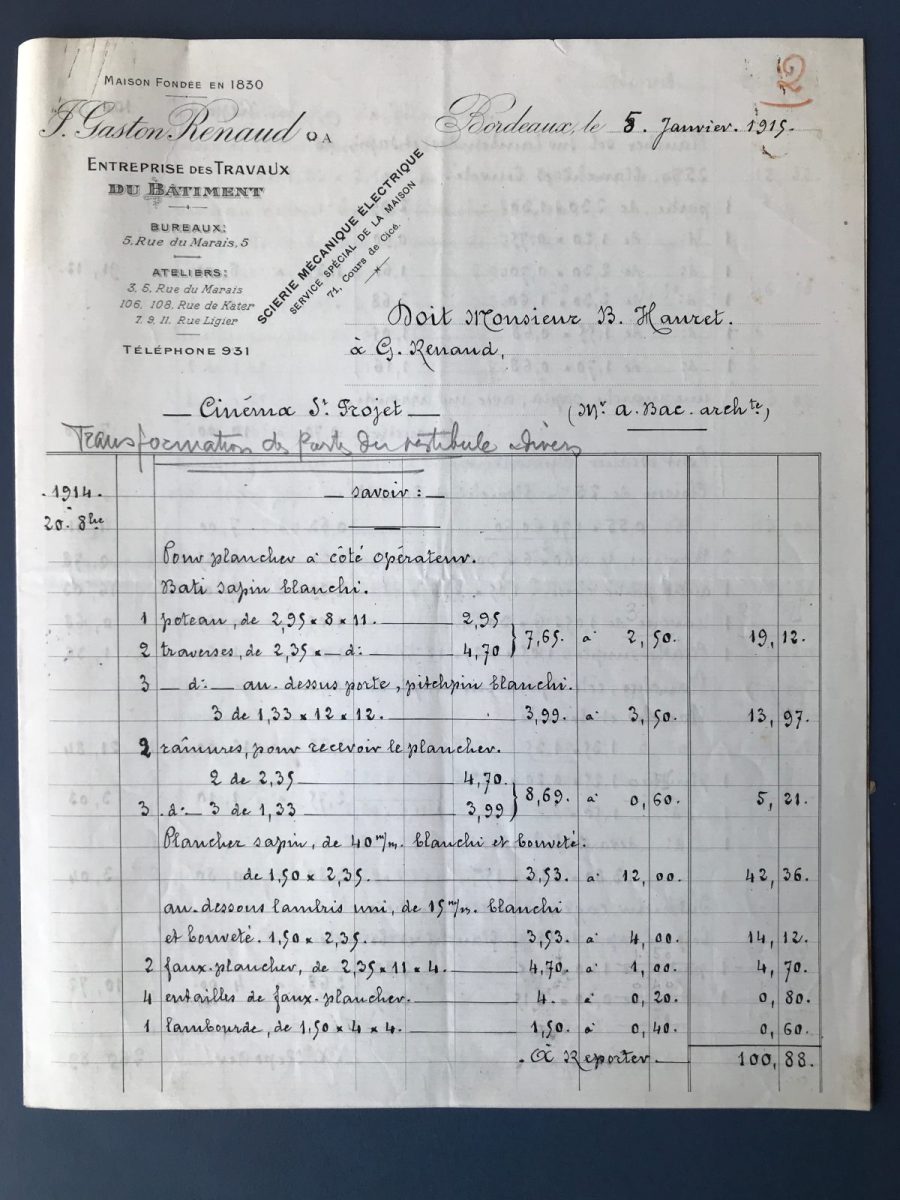 2
MAISON FONDÉE EN 1830
F. Gaston Renaud O A
Bordeaux, le 5. Janvier. 1915.
ENTREPRISE DES TRAVAUX
DU BÂTIMENT
BUREAUX:
5, Rue du Marais, 5
ATELIERS:
3, 6, Rue du Marais
106, 108, Rue de Kater
7, 9, 11, Rue Ligier
TÉLÉPHONE 931
SCIERIE MÉCANIQUE ÉLECTRIQUE
SERVICE SPÉCIAL DE LA MAISON
71, Cours de Cicé.
Doit Monsieur B. Hauret.
à G. Renaud,
— Cinéma St Projet — (Mr A. Bac. archte)
Transformation de Partie du vestibule divers
1914. — savoir : —
20. 8bre
Pour plancher à côté opérateur.
Bati sapin blanchi.
1 poteau, de 2,95 × 8 × 11. 2,95
2 traverses, de 2,35 × — d: 4,70 } 7,65. à 2,50. 19,12.
3 — d: — au dessus porte, pitchpin blanchi.
3 de 1,33 × 12 × 12. 3,99. à 3,50. 13,97.
2 raînures, pour recevoir le plancher.
2 de 2,35 4,70.
3 .d: 3 de 1,33 3,99 } 8,69. à 0,60. 5,21.
Plancher sapin, de 40 m/m. blanchi et bouveté.
de 1,50 × 2,35. 3,53. à 12,00. 42,36.
au-dessous lambris uni, de 15 m/m. blanchi
et bouveté. 1,50 × 2,35. 3,53. à 4,00. 14,12.
2 faux-plancher, de 2,35 × 11 × 4. 4,70. à 1,00. 4,70.
4 entailles de faux-plancher. 4. à 0,20. 0,80.
1 lambourde, de 1,50 × 4 × 4. 1,50. à 0,40. 0,60.
. À Reporter — 100,88.